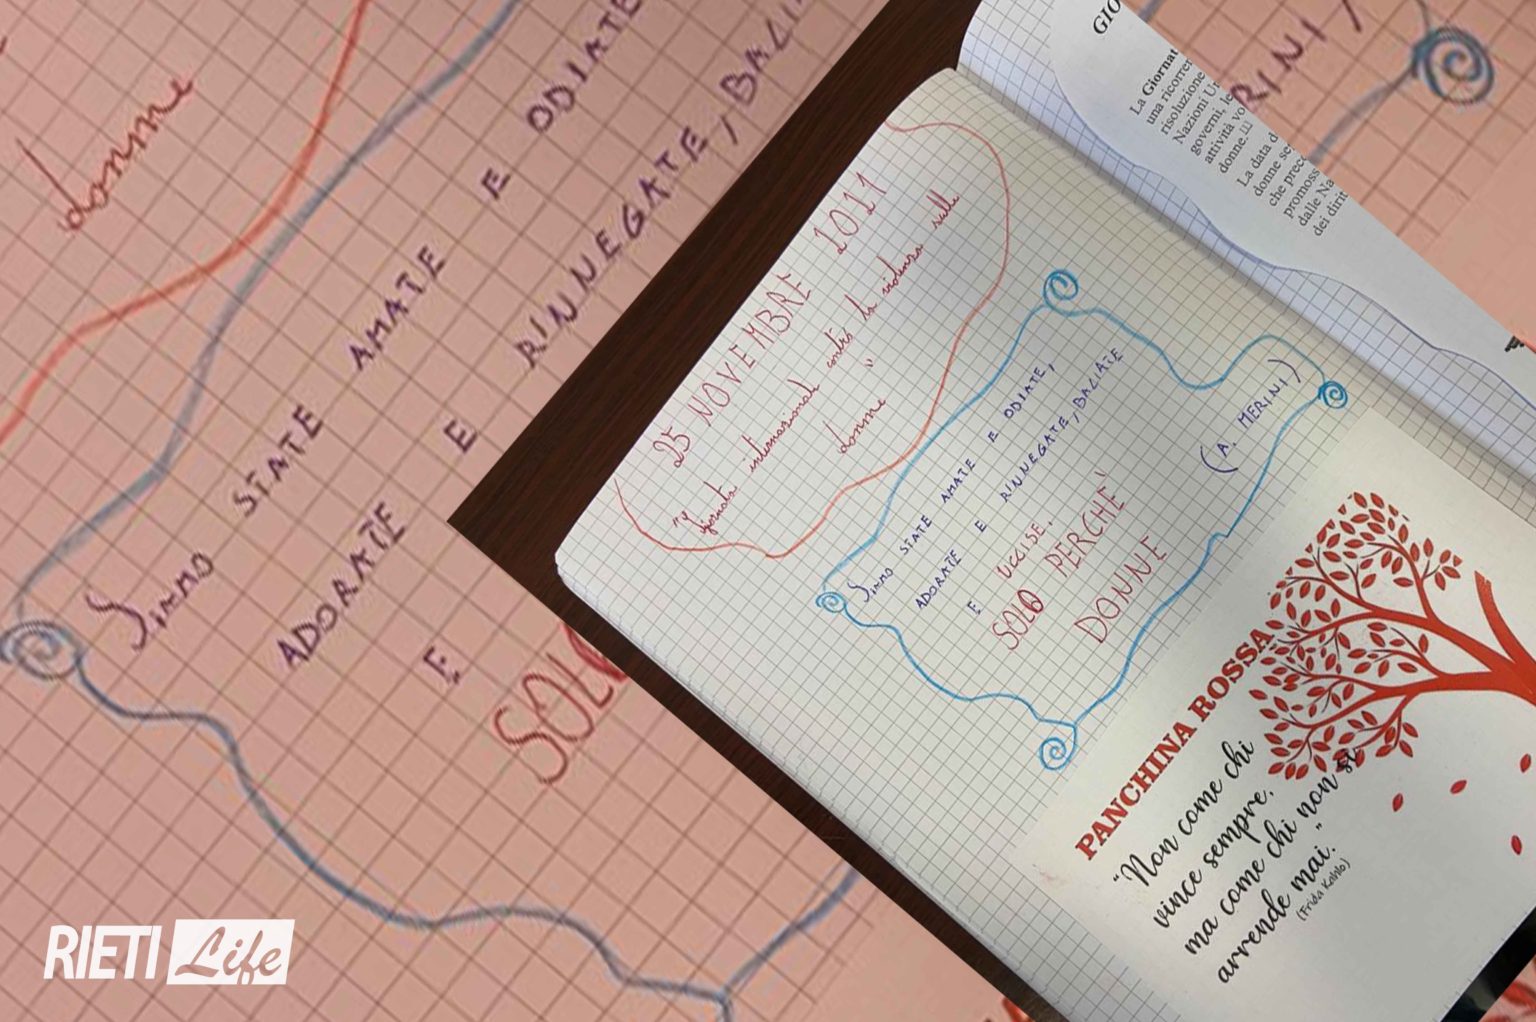 donne
SIAMO STATE AMATE E ODIATE
ADORATE E RINNEGATE, BACI
E
SOLO
RINI)
25 NOVEMBRE 2021
"giornata internazionale contro la violenza sulle
donne"
SIAMO STATE AMATE E ODIATE,
ADORATE E RINNEGATE, BACIATE
E UCCISE,
SOLO PERCHÈ
DONNE
(A. MERINI)
PANCHINA ROSSA
"Non come chi
vince sempre,
ma come chi non si
arrende mai."
(Frida Kahlo)
GIO
La Giornat
una ricorren
risoluzione
Nazioni Un
governi, le
attività vo
donne.[1]
La data d
donne se
che prece
promoss
dalle Na
dei dirit
RIETI Life